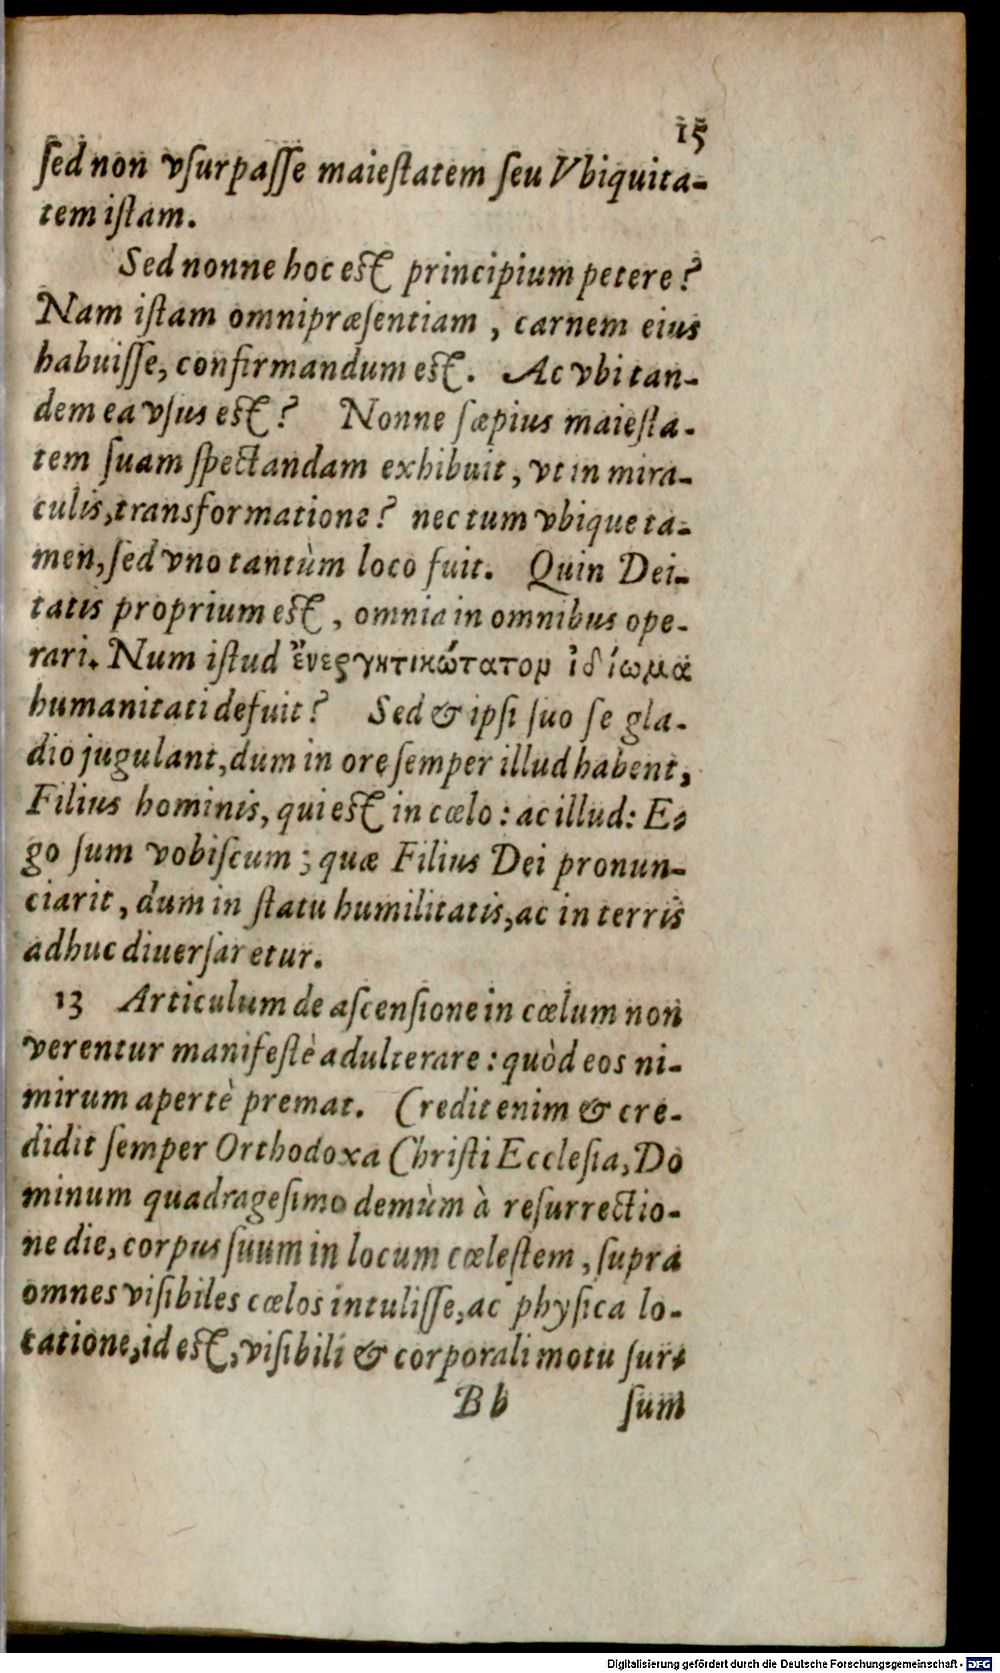 15
ſed non vſurpaſſe maieſtatem ſeu Vbiquita-
tem iſtam.
Sed nonne hoc eſt principium petere?
Nam iſtam omnipræſentiam, carnem eius
habuiſſe, confirmandum eſt. Ac vbi tan-
dem ea vſus eſt? Nonne ſæpius maieſta-
tem ſuam ſpectandam exhibuit, vt in mira-
culis, transformatione? nec tum vbique ta-
men, ſed vno tantùm loco fuit. Quin Dei-
tatis proprium eſt, omnia in omnibus ope-
rari. Num iſtud ἐνεργητικώτατον ἰδίωμα
humanitati defuit? Sed & ipſi ſuo ſe gla-
dio jugulant, dum in ore ſemper illud habent,
Filius hominis, qui eſt in cœlo: ac illud: E-
go ſum vobiſcum; quæ Filius Dei pronun-
ciarit, dum in ſtatu humilitatis, ac in terris
adhuc diuerſaretur.
13 Articulum de aſcenſione in cœlum non
verentur manifeſtè adulterare: quòd eos ni-
mirum apertè premat. Credit enim & cre-
didit ſemper Orthodoxa Chriſti Eccleſia, Do
minum quadrageſimo demùm à reſurrectio-
ne die, corpus ſuum in locum cœleſtem, ſupra
omnes viſibiles cœlos intuliſſe, ac phyſica lo-
tatione, id eſt, viſibili & corporali motu ſur-
Bb ſum
Digitalisierung gefördert durch die Deutsche Forschungsgemeinschaft - DFG